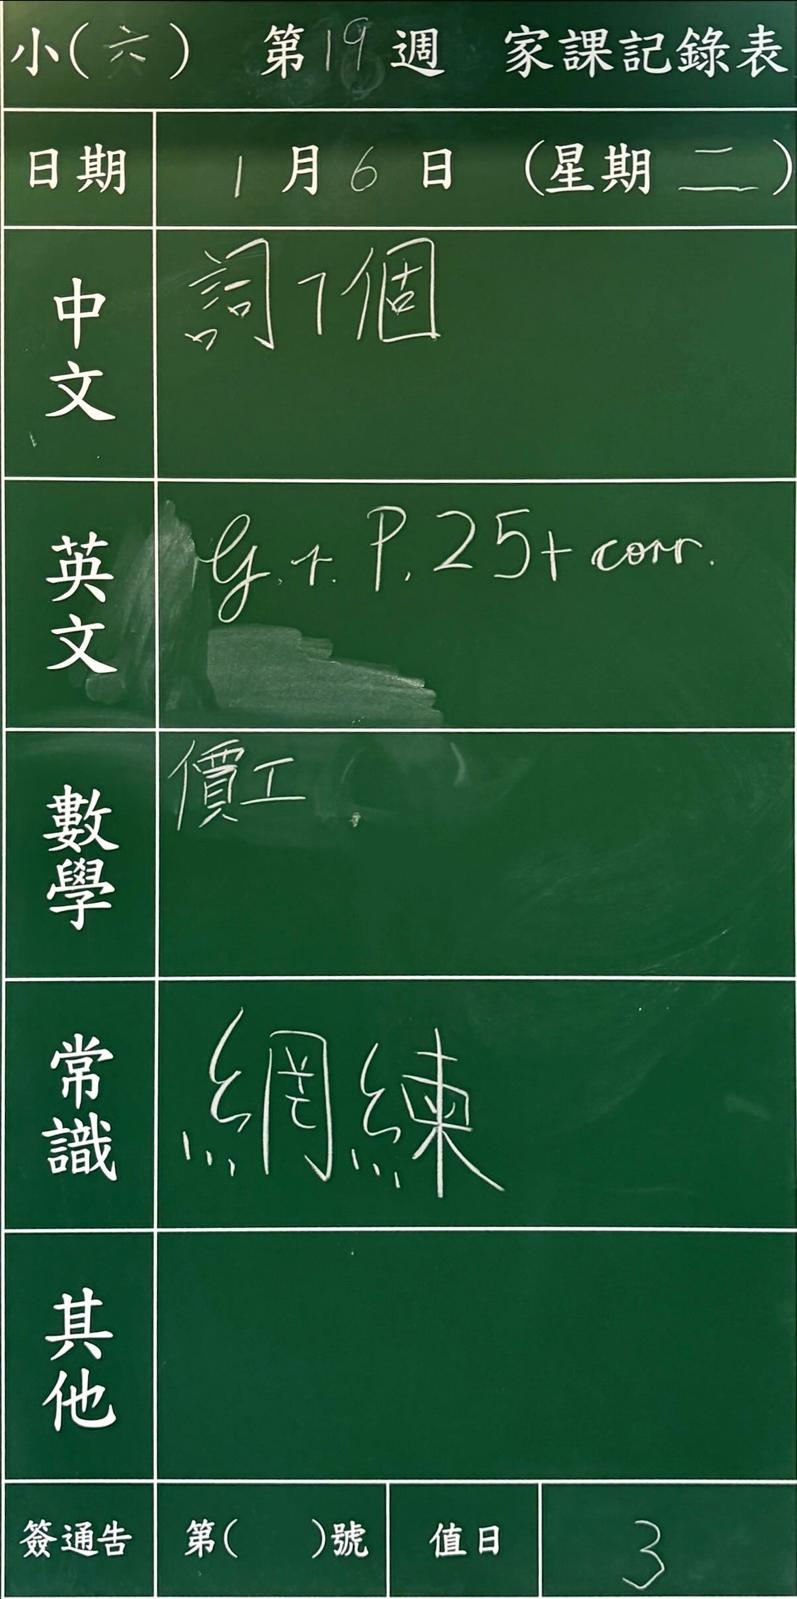 小(六) 第19週 家課記錄表
日期 1月6日 (星期二)
中文 詞7個
英文 G.r. P.25+ corr.
數學 價工
常識 網練
其他
簽通告 第( )號 值日 3